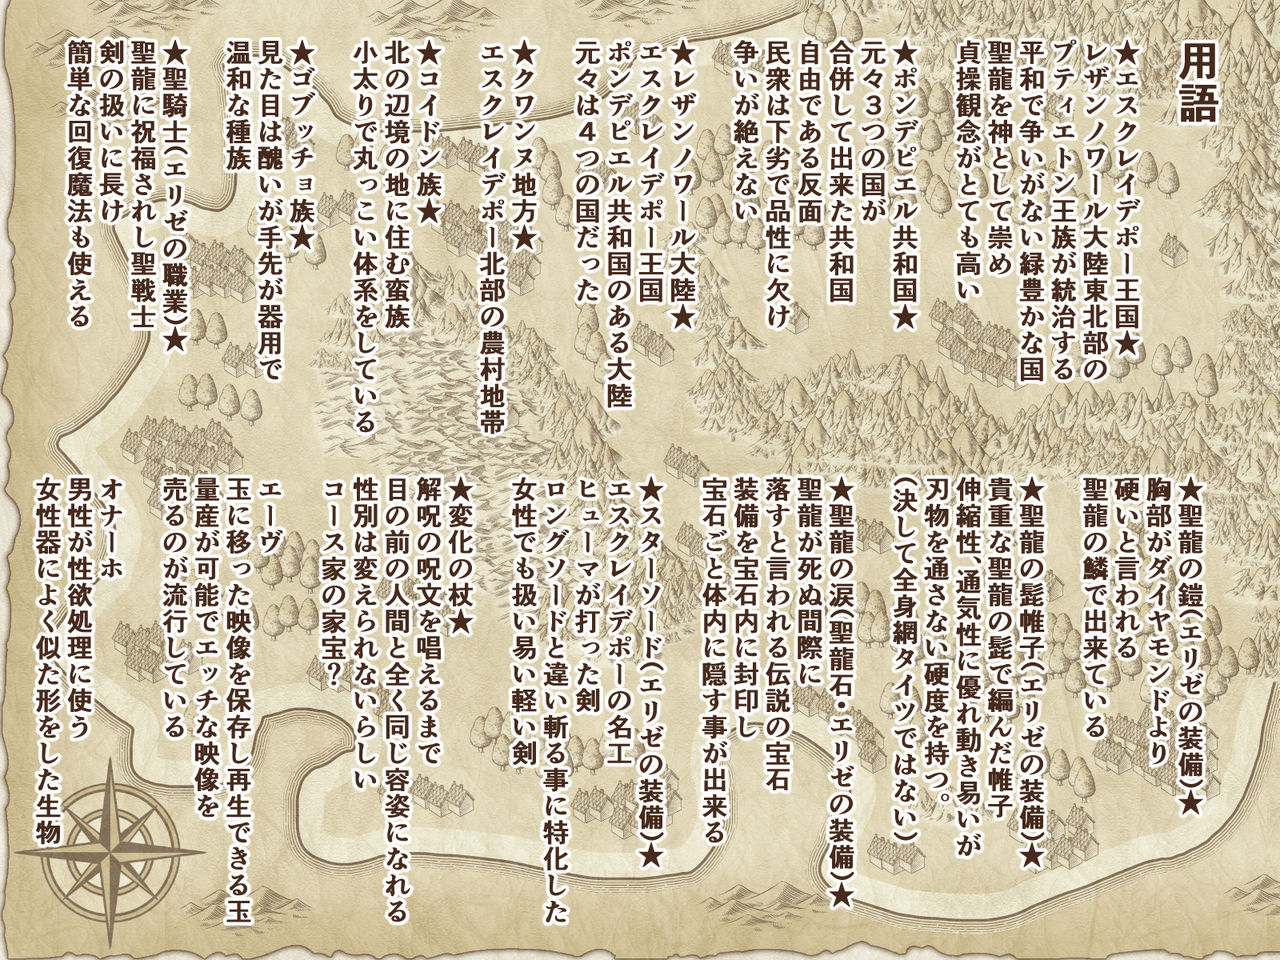 用語
★エスクレイデポー王国★
レザンノワール大陸東北部の
プティエトン王族が統治する
平和で争いがない緑豊かな国
聖龍を神として崇め
貞操観念がとても高い
★ポンデピエル共和国★
元々3つの国が
合併して出来た共和国
自由である反面
民衆は下劣で品性に欠け
争いが絶えない
★レザンノワール大陸★
エスクレイデポー王国
ポンデピエル共和国のある大陸
元々は4つの国だった
★クワンヌ地方★
エスクレイデポー北部の農村地帯
★コイドン族★
北の辺境の地に住む蛮族
小太りで丸っこい体系をしている
★ゴブッチョ族★
見た目は醜いが手先が器用で
温和な種族
★聖騎士(エリゼの職業)★
聖龍に祝福されし聖戦士
剣の扱いに長け
簡単な回復魔法も使える
★聖龍の鎧(エリゼの装備)★
胸部がダイヤモンドより
硬いと言われる
聖龍の鱗で出来ている
★聖龍の髭帷子(エリゼの装備)★
貴重な聖龍の髭で編んだ帷子
伸縮性、通気性に優れ動き易いが
刃物を通さない硬度を持つ。
(決して全身網タイツではない)
★聖龍の涙(聖龍石・エリゼの装備)★
聖龍が死ぬ間際に
落すと言われる伝説の宝石
装備を宝石内に封印し
宝石ごと体内に隠す事が出来る
★スターソード(エリゼの装備)★
エスクレイデポーの名工
ヒューマが打った剣
ロングソードと違い斬る事に特化した
女性でも扱い易い軽い剣
★変化の杖★
解呪の呪文を唱えるまで
目の前の人間と全く同じ容姿になれる
性別は変えられないらしい
コース家の家宝？
エーヴ
玉に移った映像を保存し再生できる玉
量産が可能でエッチな映像を
売るのが流行している
オナーホ
男性が性欲処理に使う
女性器によく似た形をした生物